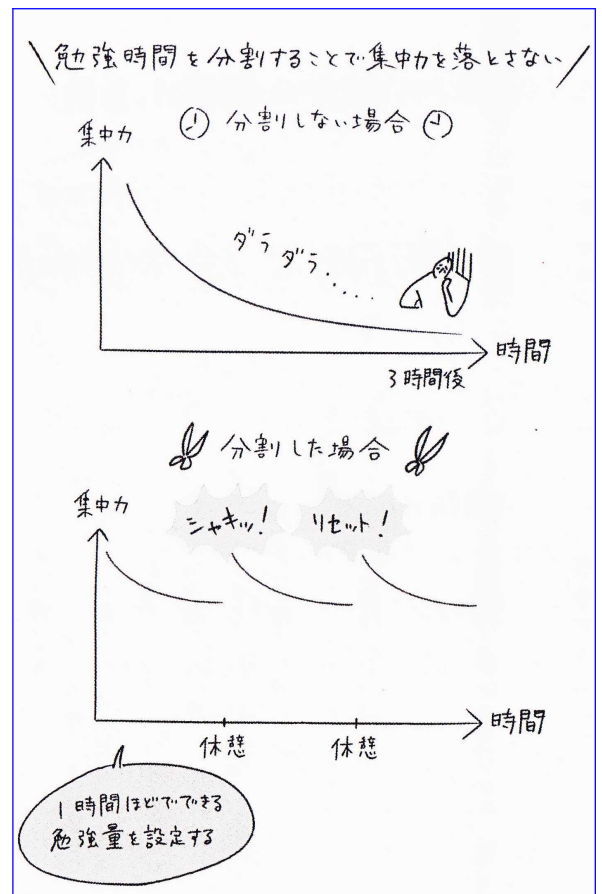 勉強時間を分割することで集中力を落とさない
分割しない場合
集中力
ダラ
ダラ.....
時間
3時間後
分割した場合
集中力
シャキッ!
リセット!
時間
休憩
休憩
1時間ほどでできる
勉強量を設定する